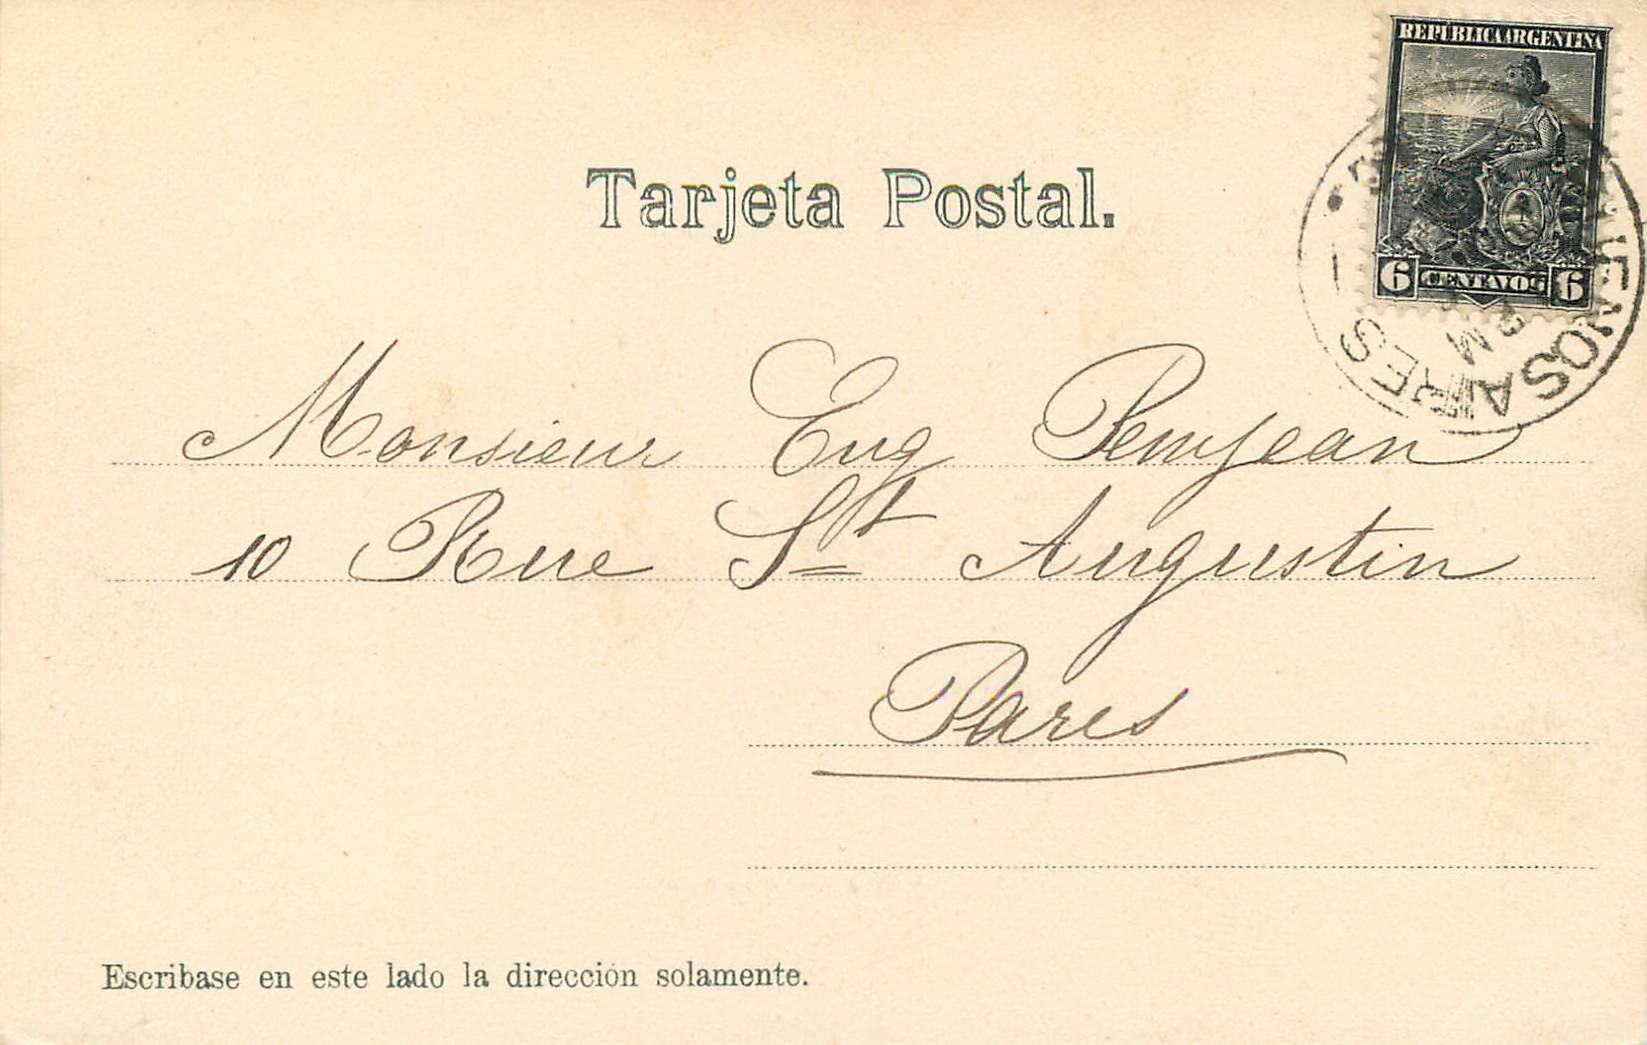 REPÚBLICA ARGENTINA
6 CENTAVOS 6
BUENOS AIRES
Tarjeta Postal.
Monsieur Eug Penyjean
10 Rue St Augustin
Paris
Escribase en este lado la dirección solamente.